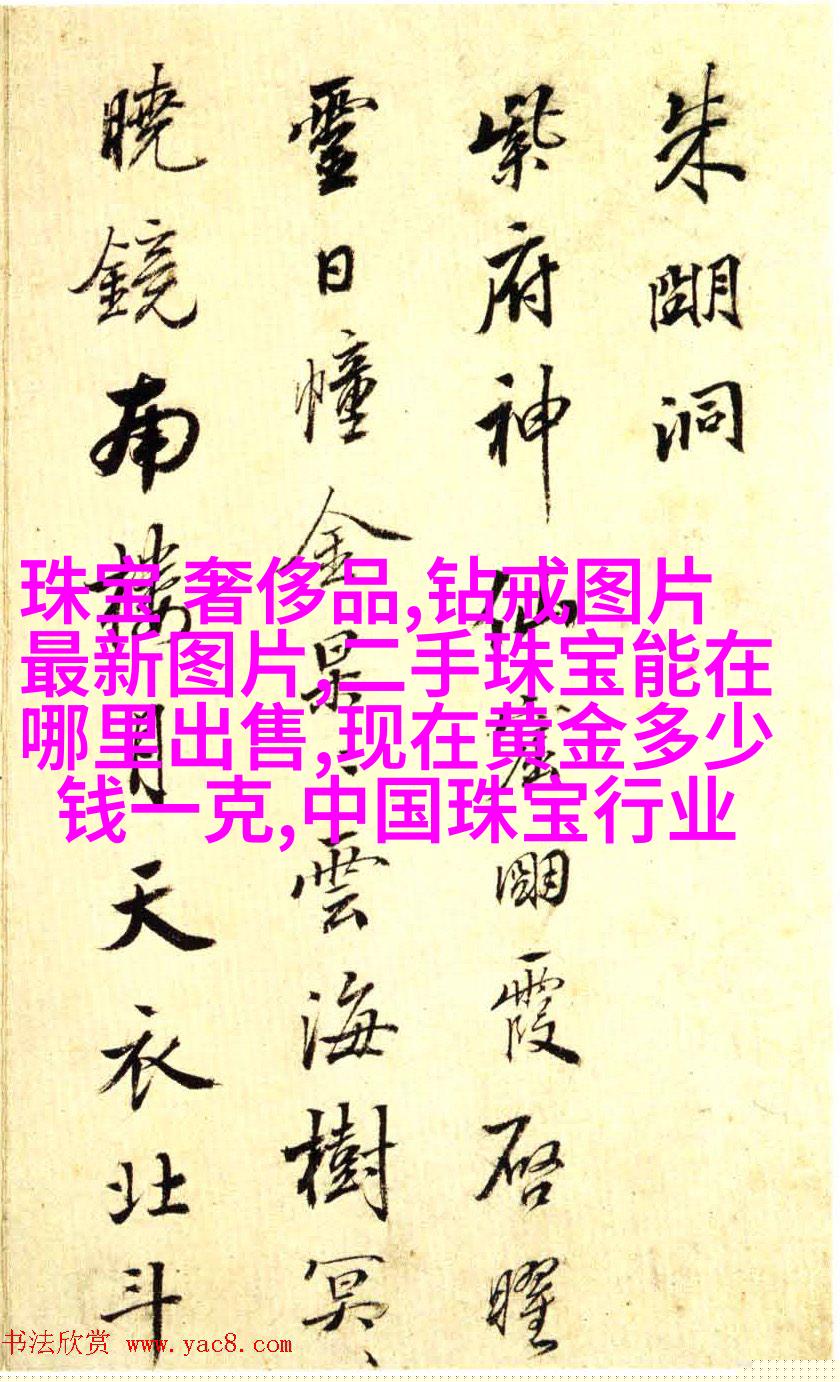 朱朙洞
紫府神仙朙霞啓曜
靈日幢金杲〻雲海樹冥〻
曉鏡南樓月天衣北斗
珠宝 奢侈品,钻戒图片
最新图片,二手珠宝能在
哪里出售,现在黄金多少
钱一克,中国珠宝行业
书法欣赏 www.yac8.com